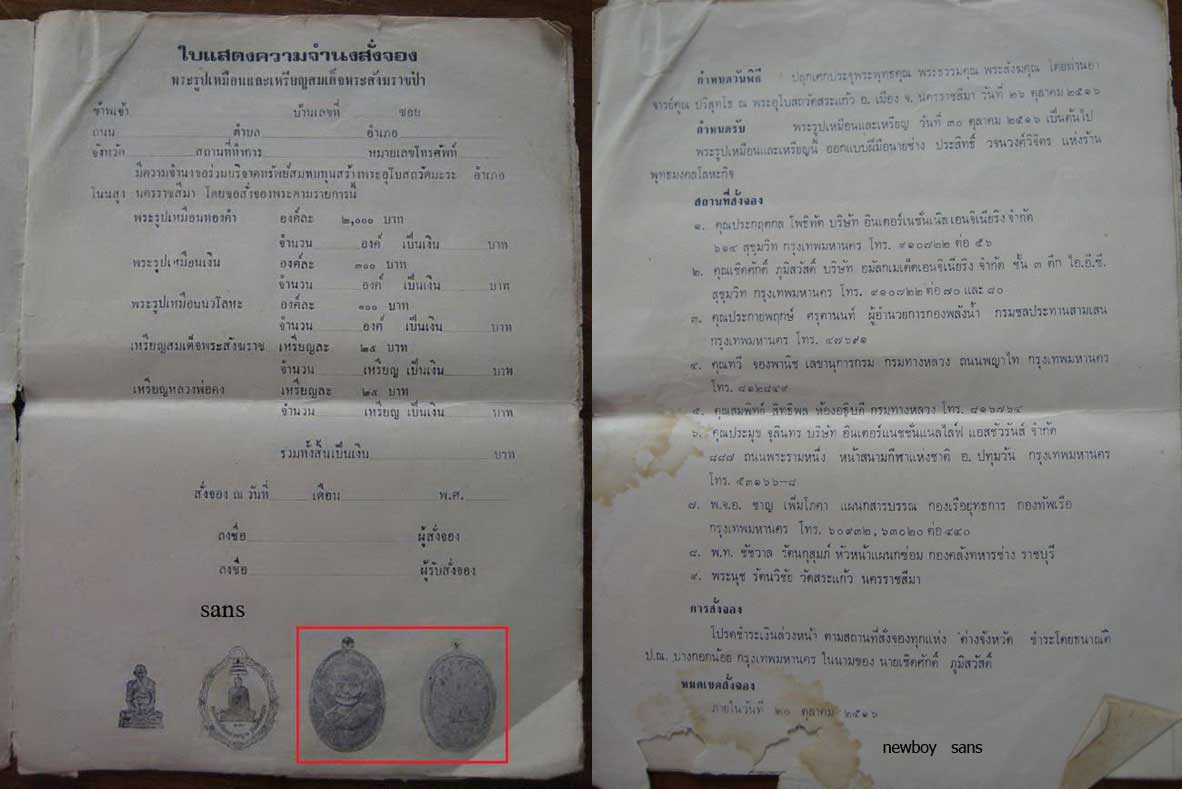 ใบแสดงความจำนงสั่งจอง
พระรูปเหมือนและเหรียญสมเด็จพระสังฆราชป๋า
ข้าพเจ้า บ้านเลขที่ ซอย
ถนน ตำบล อำเภอ
จังหวัด สถานที่ทำการ หมายเลขโทรศัพท์
มีความจำนงขอร่วมบริจาคทรัพย์สมทบทุนสร้างพระอุโบสถวัดมะระ อำเภอ
โนนสูง นครราชสีมา โดยขอสั่งจองพระตามรายการนี้
พระรูปเหมือนทองคำ องค์ละ ๒,๐๐๐ บาท
จำนวน องค์ เป็นเงิน บาท
พระรูปเหมือนเงิน องค์ละ ๓๐๐ บาท
จำนวน องค์ เป็นเงิน บาท
พระรูปเหมือนนวโลหะ องค์ละ ๑๐๐ บาท
จำนวน องค์ เป็นเงิน บาท
เหรียญสมเด็จพระสังฆราช เหรียญละ ๒๕ บาท
จำนวน เหรียญ เป็นเงิน บาท
เหรียญหลวงพ่อคง เหรียญละ ๒๕ บาท
จำนวน เหรียญ เป็นเงิน บาท
รวมทั้งสิ้นเป็นเงิน บาท
สั่งจอง ณ วันที่ เดือน พ.ศ.
ลงชื่อ ผู้สั่งจอง
ลงชื่อ ผู้รับสั่งจอง
sans
กำหนดวันพิธี ปลุกเศกประจุพระพุทธคุณ พระธรรมคุณ พระสังฆคุณ โดยท่านอา
จารย์คุณ ปริสุทโธ ณ พระอุโบสถวัดสระแก้ว อ. เมือง จ. นครราชสีมา วันที่ ๒๖ ตุลาคม ๒๕๑๖
กำหนดรับ พระรูปเหมือนและเหรียญ วันที่ ๓๐ ตุลาคม ๒๕๑๖ เป็นต้นไป
พระรูปเหมือนและเหรียญนี้ ออกแบบฝีมือนายช่าง ประสิทธิ์ วจนวงศ์วิจิตร แห่งร้าน
พุทธมงคลโลหะกิจ
สถานที่สั่งจอง
๑. คุณประกฤตกล โพธิทัต บริษัท อินเตอร์เนชั่นเนิล เอนจิเนียริง จำกัด
๖๑๔ สุขุมวิท กรุงเทพมหานคร โทร. ๙๑๐๗๒๒ ต่อ ๕๖
๒. คุณเชิดศักดิ์ ภูมิสวัสดิ์ บริษัท อมัลกเมเต็ดเอนจิเนียริง จำกัด ชั้น ๓ ตึก ไอ.อี.ซี.
สุขุมวิท กรุงเทพมหานคร โทร. ๙๑๐๗๒๒ ต่อ ๗๐ และ ๘๐
๓. คุณประกายพฤกษ์ ศรุตานนท์ ผู้อำนวยการกองพลังน้ำ กรมชลประทานสามเสน
กรุงเทพมหานคร โทร. ๔๗๖๙๑
๔. คุณทวี จองพานิช เลขานุการกรม กรมทางหลวง ถนนพญาไท กรุงเทพมหานคร
โทร. ๘๑๒๘๔๙
๕. คุณสมพิทธ์ สิทธิพล ห้องอธิบดี กรมทางหลวง โทร. ๘๑๖๗๖๔
๖. คุณประมุข จุลินทร บริษัท อินเตอร์แนชชั่นแนลไล้ฟ์ แอสชัวรันส์ จำกัด
๘๘๗ ถนนพระรามหนึ่ง หน้าสนามกีฬาแห่งชาติ อ. ปทุมวัน กรุงเทพมหานคร
โทร. ๕๓๑๖๖–๘
๗. พ.จ.อ. ชาญ เพิ่มโภคา แผนกสารบรรณ กองเรือยุทธการ กองทัพเรือ
กรุงเทพมหานคร โทร. ๖๐๙๓๒, ๖๓๐๒๐ ต่อ ๔๔๐
๘. พ.ท. ชัชวาล รัตนกุสุมภ์ หัวหน้าแผนกซ่อม กองคลังทหารช่าง ราชบุรี
๙. พระนุช รัตนวิชัย วัดสระแก้ว นครราชสีมา
การสั่งจอง
โปรดชำระเงินล่วงหน้า ตามสถานที่สั่งจองทุกแห่ง ต่างจังหวัด ชำระโดยธนาณัติ
ป.ณ. บางกอกน้อย กรุงเทพมหานคร ในนามของ นายเชิดศักดิ์ ภูมิสวัสดิ์
หมดเขตสั่งจอง
ภายในวันที่ ๒๐ ตุลาคม ๒๕๑๖
newboy sans